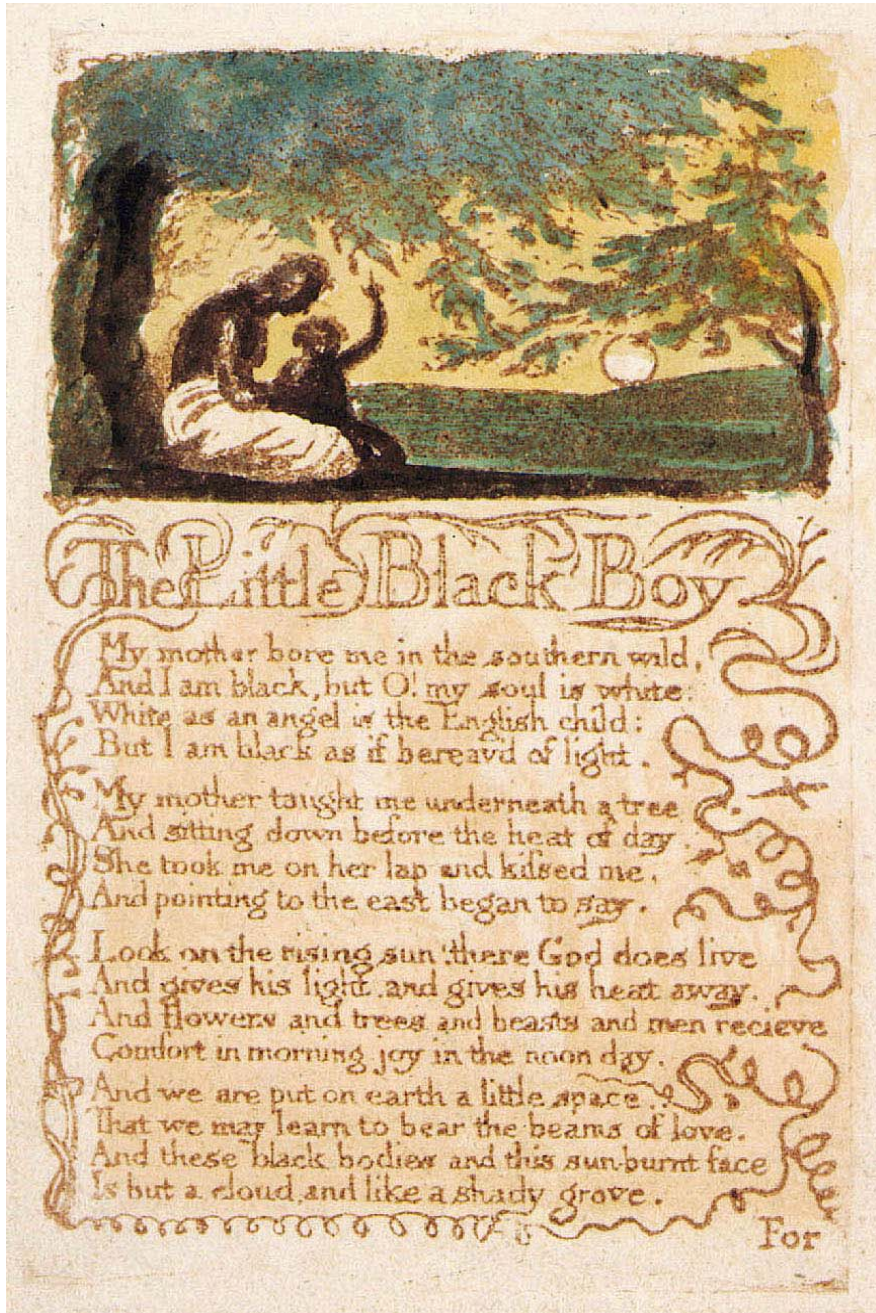 The Little Black Boy
My mother bore me in the southern wild,
And I am black, but O! my soul is white:
White as an angel is the English child:
But I am black as if bereav'd of light.
My mother taught me underneath a tree
And sitting down before the heat of day.
She took me on her lap and kiſsed me,
And pointing to the east began to say.
Look on the rising sun: there God does live
And gives his light, and gives his heat away.
And flowers and trees and beasts and men recieve
Comfort in morning joy in the noon day.
And we are put on earth a little space.
That we may learn to bear the beams of love.
And these black bodies and this sun-burnt face
Is but a cloud, and like a shady grove.
For